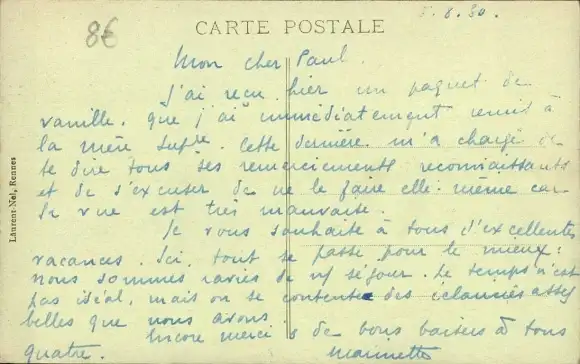 8€
5.8.30.
CARTE POSTALE
Mon cher Paul
J'ai reçu hier un paquet de
vanille. que j'ai immédiatement remis à
la mère Supre. Cette dernière m'a chargé de
te dire tous ses remerciements reconnaissants
et de s'excuser de ne le faire elle-même car
sa vue est très mauvaise.
Je vous souhaite à tous d'excellentes
vacances. Ici tout se passe pour le mieux:
nous sommes ravies de séjour. Le temps n'est
pas idéal, mais on se contente des éclaircies assez
belles que nous avons
Encore merci de bons baisers à tous
quatre. Mainette
Laurent-Nel, Rennes